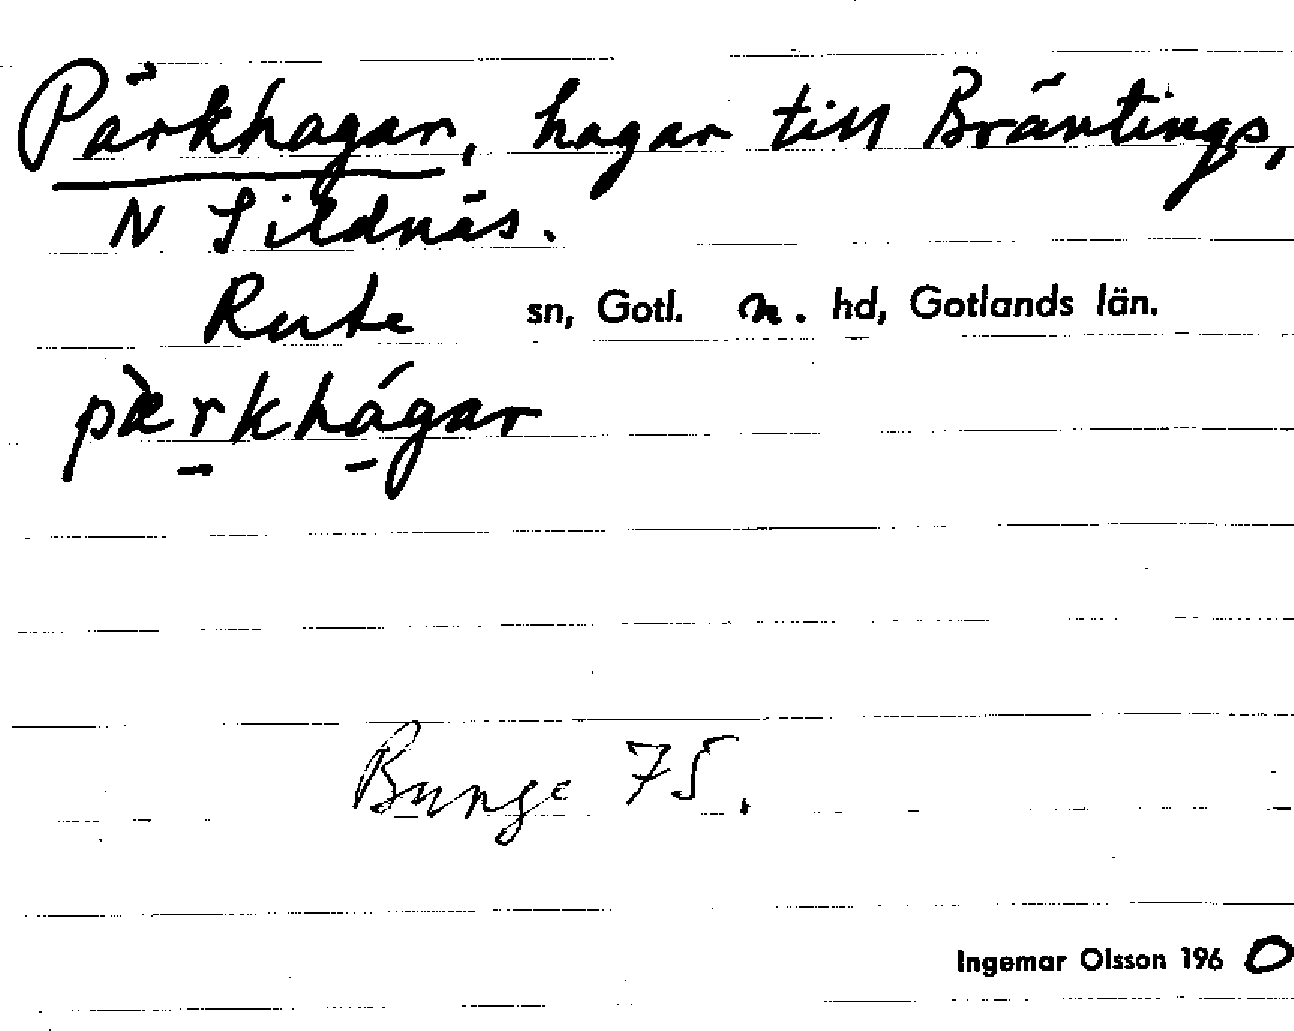 Pärkhagar, hagar till Bräntings,
N Sildnäs.
Rute sn, Gotl. n. hd, Gotlands län.
pæ̀r̲khá̲gar
Bunge 75.
Ingemar Olsson 1960